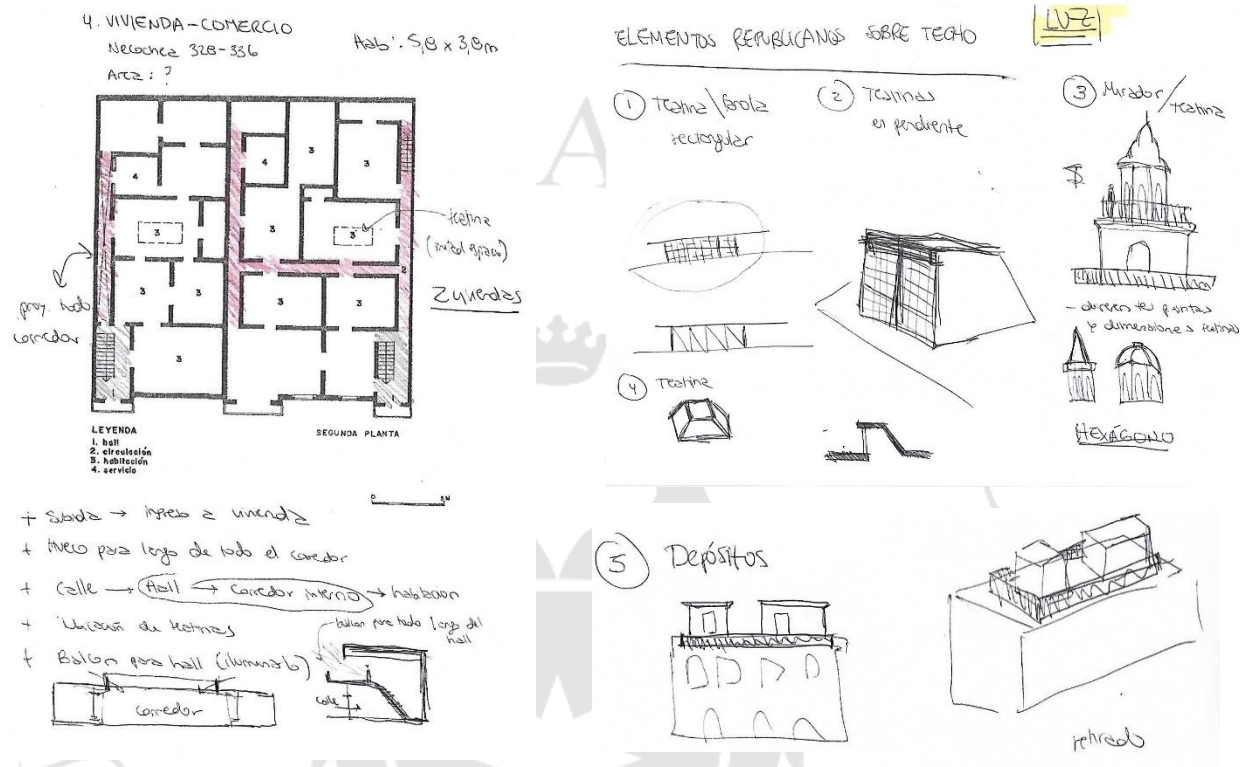 4. VIVIENDA-COMERCIO
Necochea 328-336
Hab: 5,8 x 3,8m
Area: ?
4
3
3
3
3
3
3
3
4
3
3
3
3
3
2
teatina
2 viviendas
proy. todo
corredor
LEYENDA
1. hall
2. circulación
3. habitación
4. servicio
SEGUNDA PLANTA
0 5M
+ Subida → ingreso a vivienda
+ Hueco para largo de todo el corredor
+ Calle → Hall → corredor interno → habitación
+ Ubicación de teatinas
+ Balcón para hall (iluminarlo)
balcón para todo largo del
hall
corredor
calle
ELEMENTOS REPUBLICANOS SOBRE TECHO
LUZ
1 Teatina\farola
rectangular
2 Teatinas
en pendiente
3 Mirador/
teatina
- diferentes plantas
y dimensiones teatinas
HEXÁGONO
4 Teatina
5 Depósitos
retirado